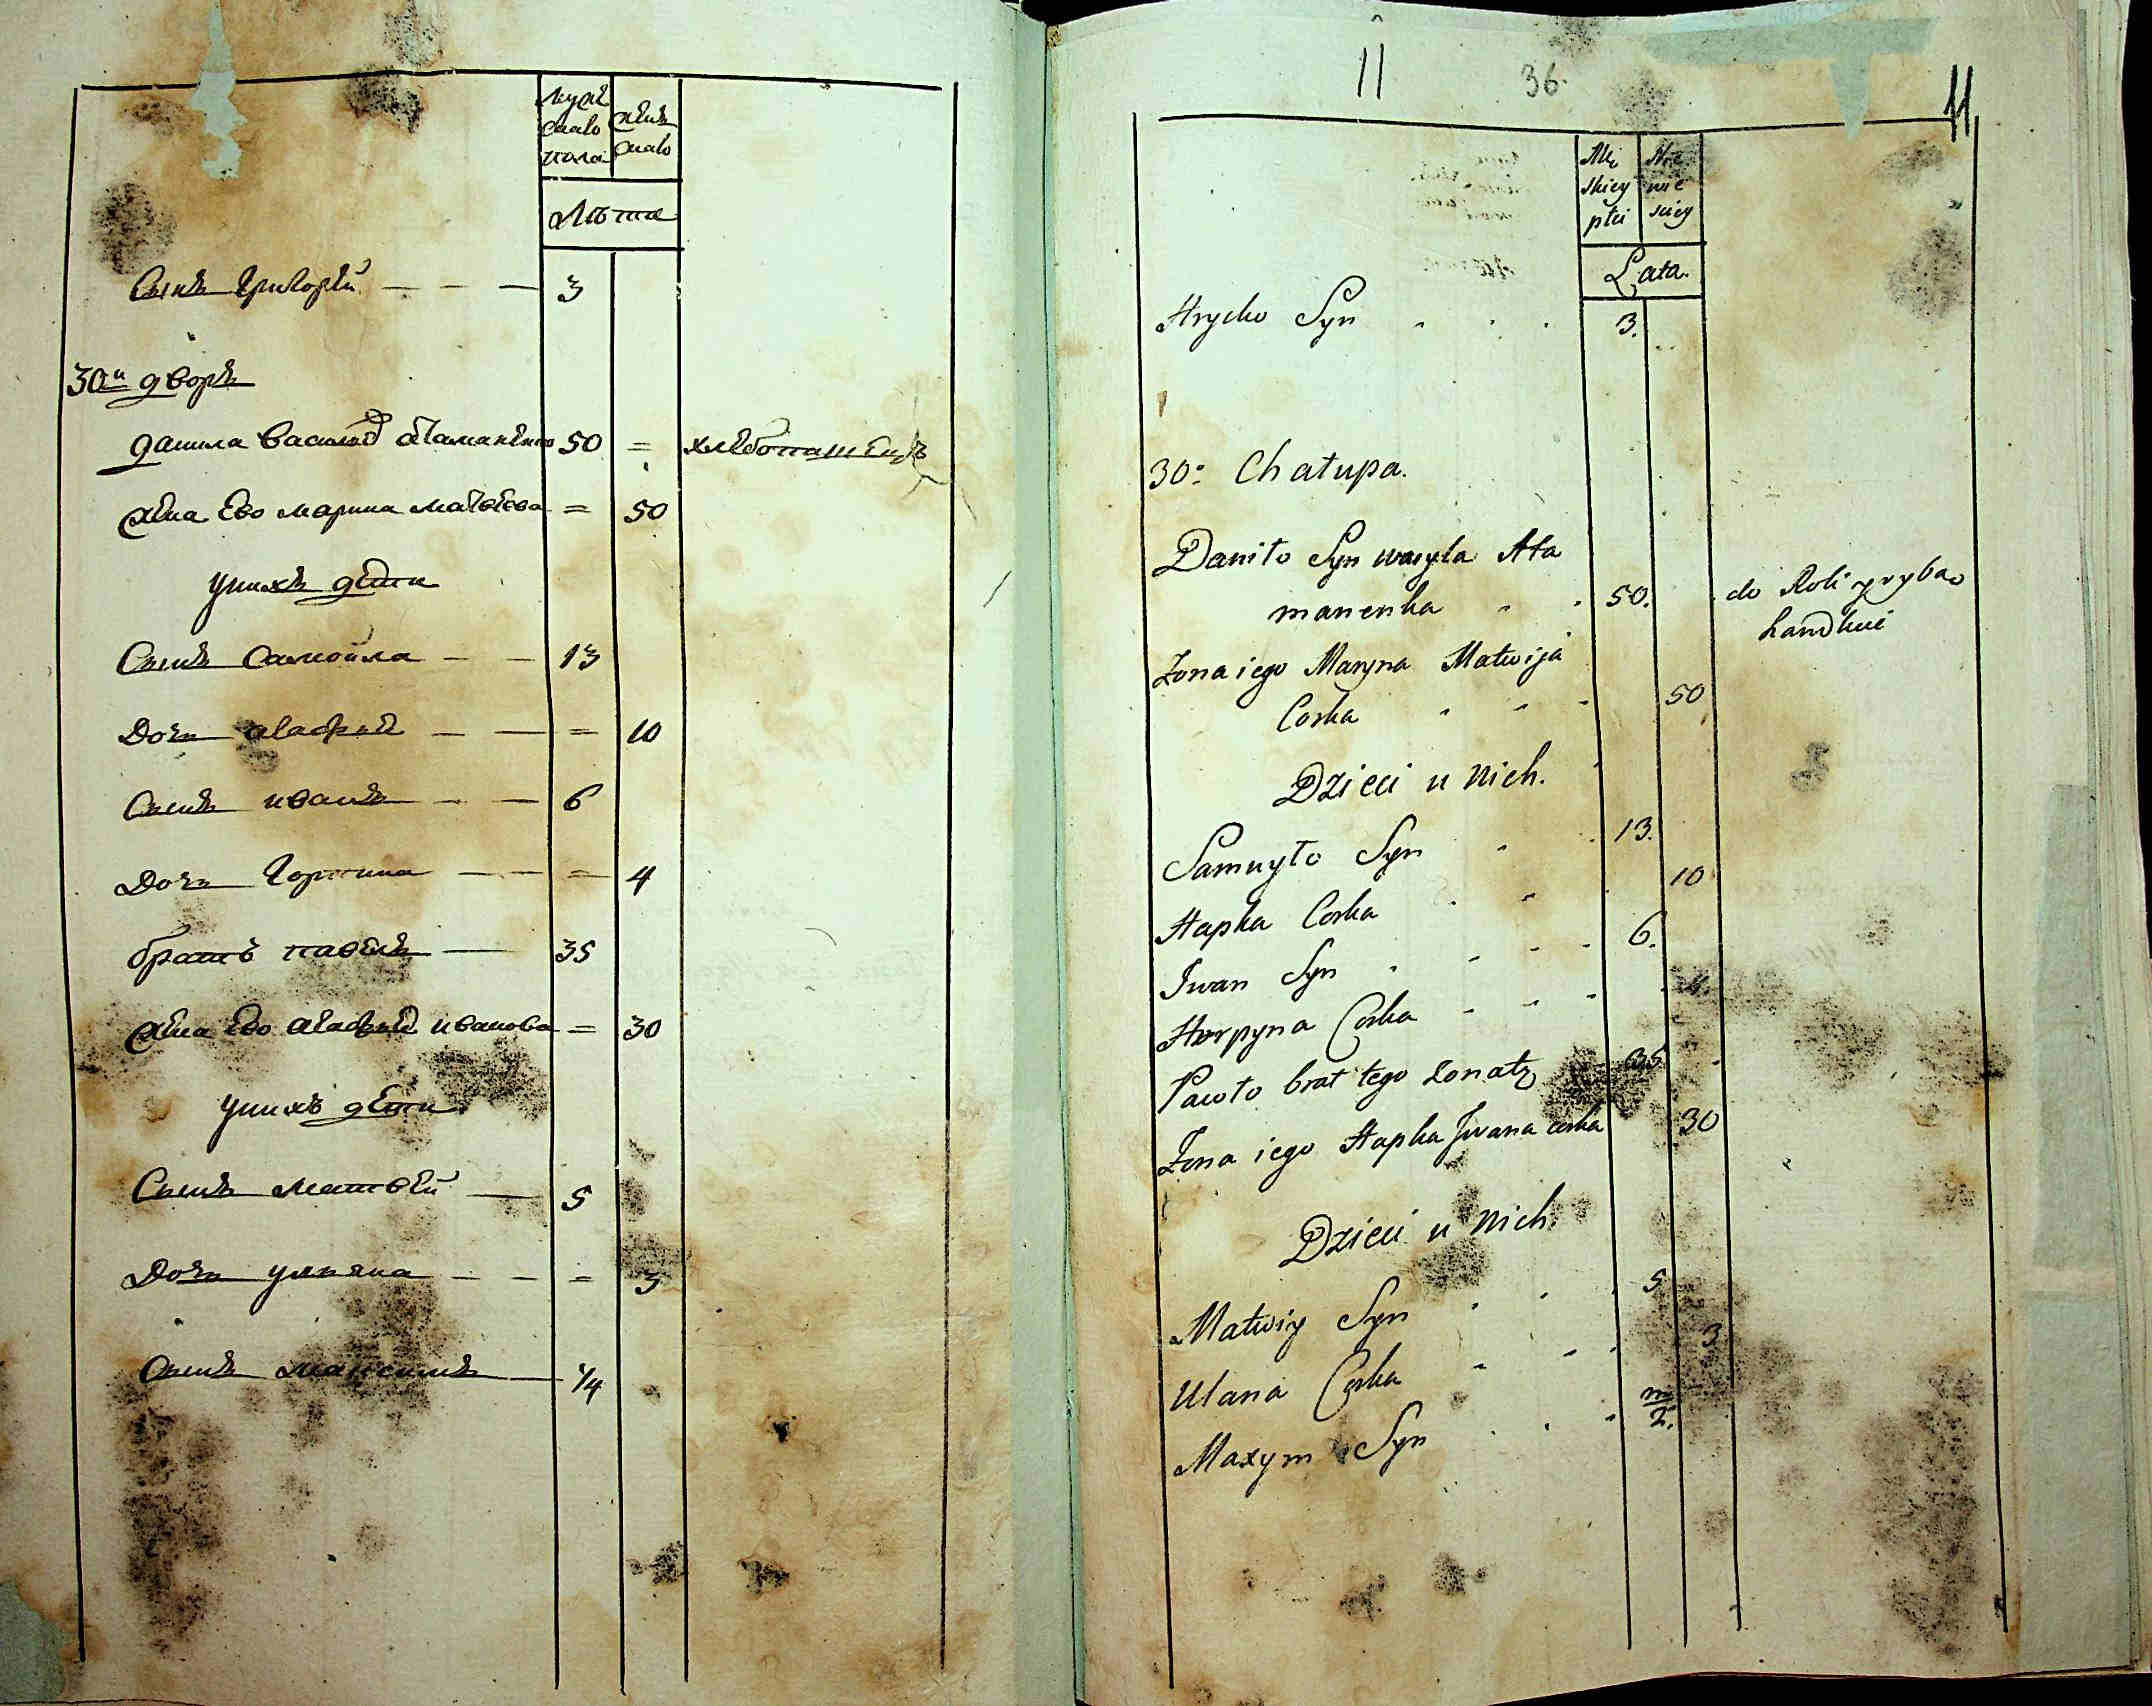 Муже
скаго
пола
женс
скаго
Лѣта
Сынъ Григорей — — — 3
30й дворъ
данила Васильев Атаманенко 50 = хлебопашецъ
жена Ево марина матвѣева = 50
у нихъ дети
Сынъ Самойла — — 13
Дочь агафия — — = 10
Сынъ иванъ — — 6
Дочь Горпина — — = 4
братъ павелъ — 35
жена Ево агафия иванова = 30
у нихъ дети
Сынъ матвей — 5
Дочь ульяна — — = 3
Сынъ максимъ — 1/4
11
36.
11
Mę
skiey
płci
Nie
wie
sciey
Lata.
Hrycko Syn . . . 3.
30: Chałupa.
Daniło Syn wasyla Ata
manenka . . 50. do Roli przyba
handlu
Żona iego Maryna Matwija
Corka . . . 50
Dzieci u nich.
Samuyło Syn . . 13.
Hapka Corka . . . 10
Iwan Syn . . . 6.
Horpyna Corka . . . 4.
Pawło brat tego żonaty 35
Żona iego Hapka Iwana corka 30
Dzieci u nich.
Matwiy Syn . . . 5
Ulana Corka . . . 3
Maxym Syn . . . m/2.